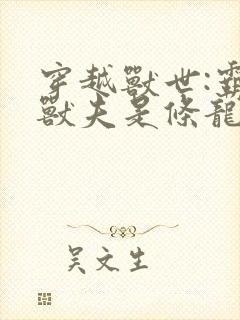 穿越獸世:霸
獸夫是條龍
吴文生